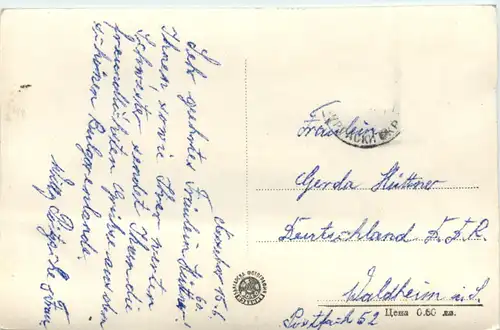 15.6.60.
Sehr geehrtes Fräulein Hüttner!
Ihnen sowie Ihrer werten
Schwester sendet Ihnen die
freundlichsten Grüße aus dem
schönen Bulgarenland.
Willy
Fräulein
Gerda Hüttner
Deutschland D.D.R.
Waldheim i.S.
Postfach 52
Цена 0.60 лв.